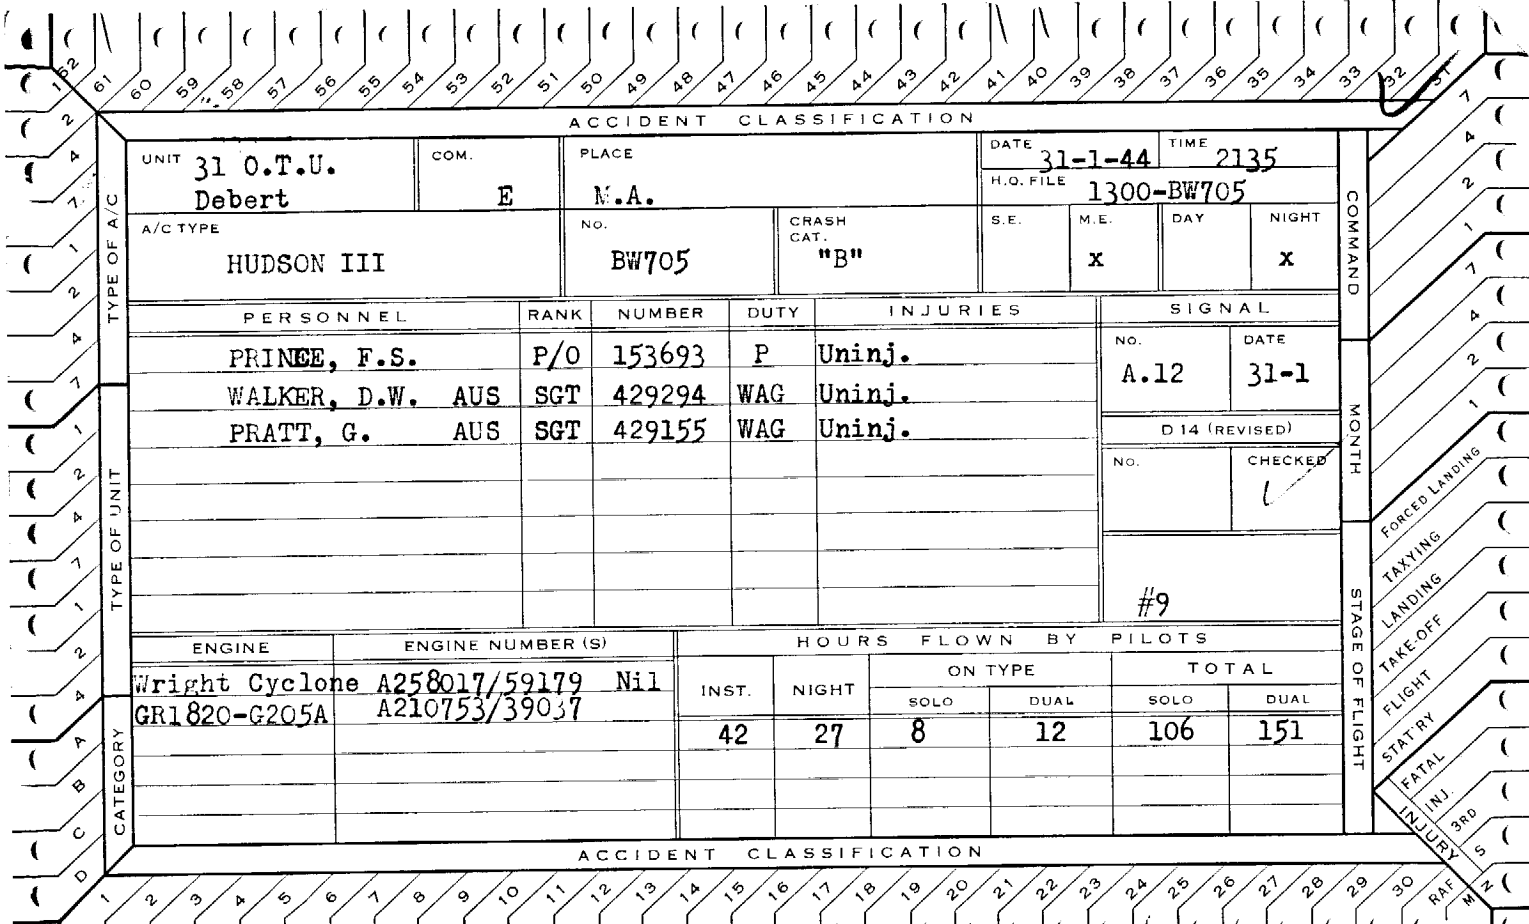 62 61 60 59 58 57 56 55 54 53 52 51 50 49 48 47 46 45 44 43 42 41 40 39 38 37 36 35 34 33 32 31
ACCIDENT CLASSIFICATION
UNIT 31 O.T.U.
Debert
COM.
E
PLACE
M.A.
DATE 31-1-44 TIME 2135
H.Q. FILE 1300-BW705
A/C TYPE
HUDSON III
NO.
BW705
CRASH
CAT.
"B"
S.E. M.E. DAY NIGHT
x x
PERSONNEL RANK NUMBER DUTY INJURIES
PRINCE, F.S. P/O 153693 P Uninj.
WALKER, D.W. AUS SGT 429294 WAG Uninj.
PRATT, G. AUS SGT 429155 WAG Uninj.
SIGNAL
NO. DATE
A.12 31-1
D 14 (REVISED)
NO. CHECKED
#9
ENGINE ENGINE NUMBER (S)
Wright Cyclone A258017/59179 Nil
GR1820-G205A A210753/39037
HOURS FLOWN BY PILOTS
INST. NIGHT ON TYPE TOTAL
SOLO DUAL SOLO DUAL
42 27 8 12 106 151
ACCIDENT CLASSIFICATION
1 2 3 4 5 6 7 8 9 10 11 12 13 14 15 16 17 18 19 20 21 22 23 24 25 26 27 28 29 30 RAF
TYPE OF A/C
TYPE OF UNIT
CATEGORY
1 2 4 7 1 2 4 7 1 2 4 7 1 2 4 A B C D
COMMAND
MONTH
STAGE OF FLIGHT
INJURY
7 4 2 1 7 4 2 1
FORCED LANDING
TAXYING
LANDING
TAKE-OFF
FLIGHT
STAT'RY
FATAL
INJ.
3RD
S
N
M